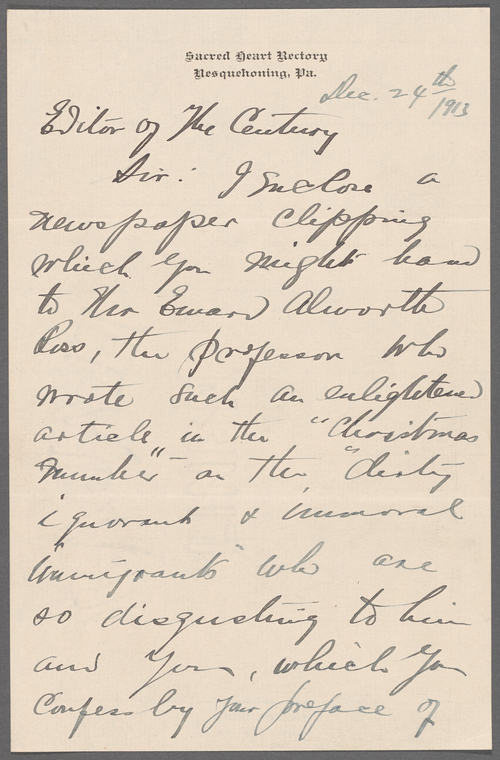 Sacred Heart Rectory
Nesquehoning, Pa.
Dec. 24th 1913
Editor of The Century
Sir: I Enclose a
newspaper clipping
which you might hand
to Mr Edward Alsworth
Ross, the professor who
wrote such an enlightened
article in the "Christmas
Number" on the "dirty
ignorant & immoral
immigrants" who are
so disgusting to him
and you, which you
confess by your preface of